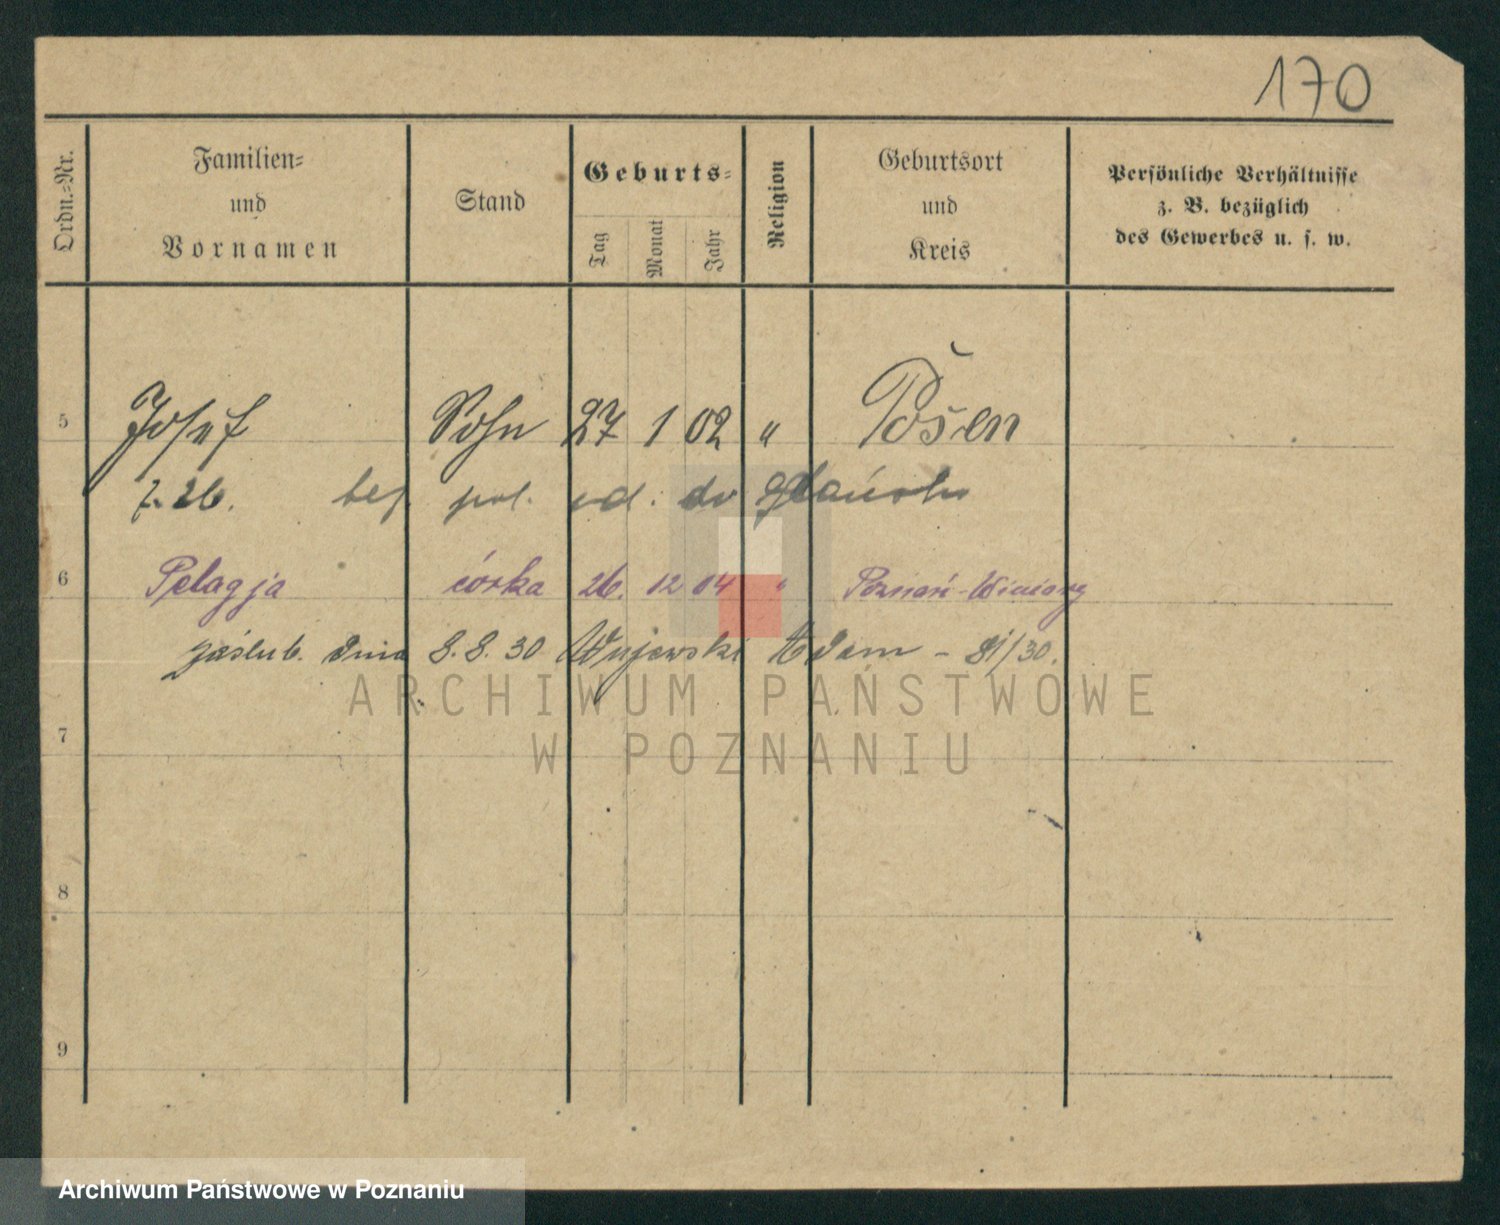 170
Ordn.-Nr.
Familien-
und
Vornamen
Stand
Geburts-
Tag
Monat
Jahr
Religion
Geburtsort
und
Kreis
Persönliche Verhältnisse
z. B. bezüglich
des Gewerbes u. s. w.
5 Josef Sohn 27 1 02 " Posen
7. 26. pol. do Gdańska
6 Pelagja córka 26. 12 04 " Poznań-Winiary
zaślub. dnia 8.8.30 Wujewski Adam -
ARCHIWUM PAŃSTWOWE
W POZNANIU
7
8
9
Archiwum Państwowe w Poznaniu